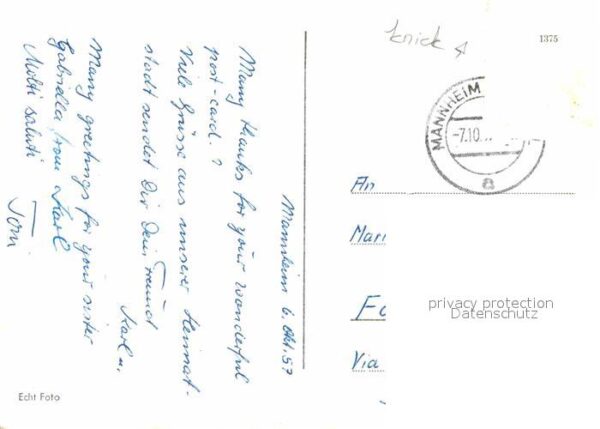 Mannheim 6. Okt. 57
Many thanks for your wonderful
post-card. ?
Viele Grüsse aus unserer Heimat-
stadt sendet Dir Dein Freund
Karl u.
Many greetings for your sister
Gabriella from Karl
Molti saluti Toni
Echt Foto
Knick
1375
MANNHEIM
-7.10.
a
An
Man
Via
privacy protection
Datenschutz